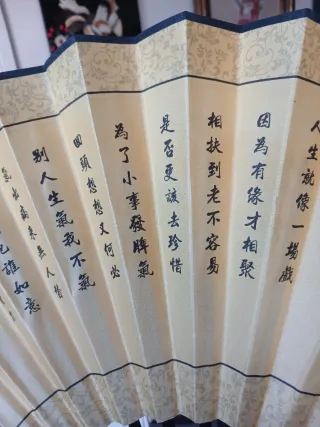 人生就像一場戲
因為有緣才相聚
相扶到老不容易
是否更該去珍惜
為了小事發脾氣
回頭想想又何必
別人生氣我不氣
氣出病來無人替
如意